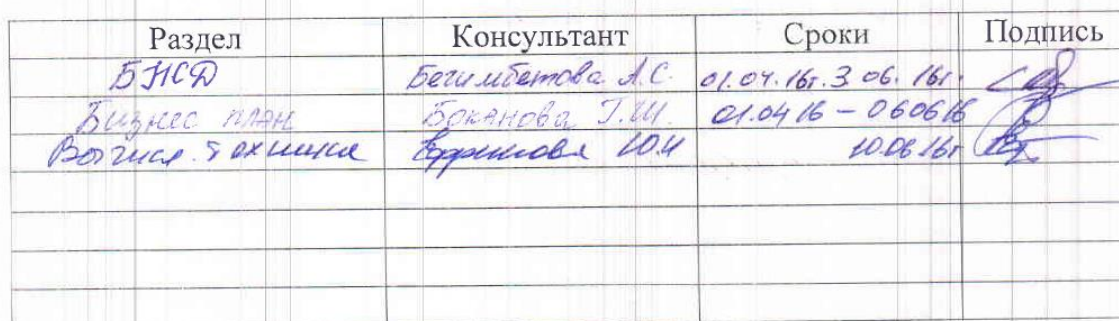 Раздел Консультант Сроки Подпись
БЖД Бегимбетова А.С. 01.04.16г. 3.06.16г.
Бизнес план Боканова Г.Ш. 01.04 16 – 060616
Вычисл. техника Ефремова Ю.И 10.06 16г